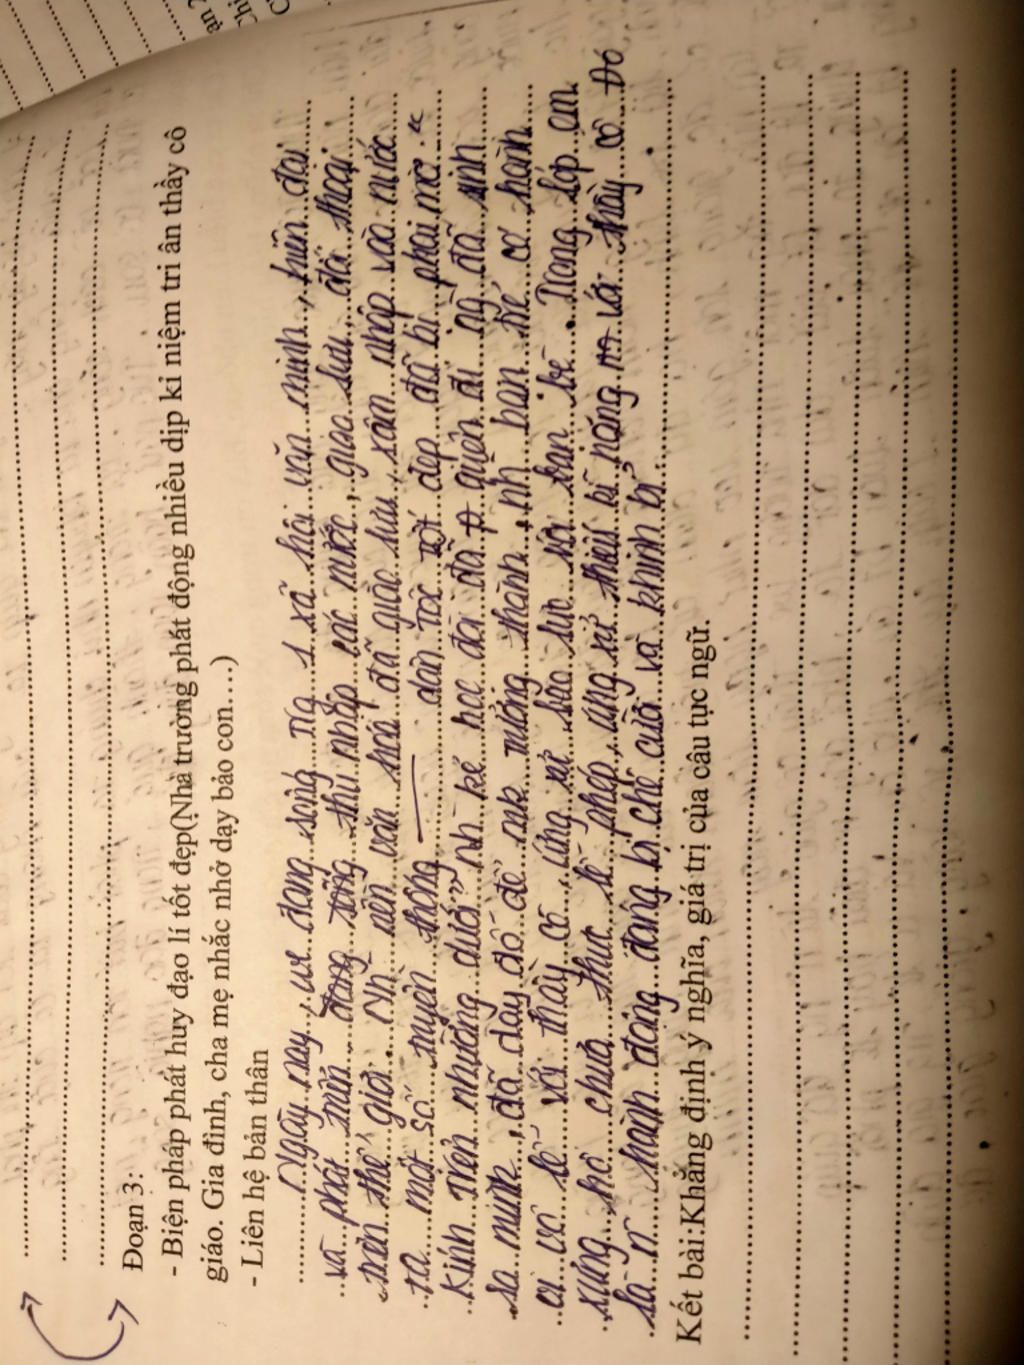 Đoạn 3:
- Biện pháp phát huy đạo lí tốt đẹp(Nhà trường phát động nhiều dịp kỉ niệm tri ân thầy cô
giáo. Gia đình, cha mẹ nhắc nhở dạy bảo con….)
- Liên hệ bản thân
Ngày nay, đang sống 1 xã hội văn minh, hiện đại
và phát đang sống thu nhập các nước, giao lưu, đối thoại
trên thế giới. nền văn hoá đã giao lưu, xâm nhập vào nước
ta một số truyền thống dân tộc tốt đẹp đã bị phai mờ. "
Kính trên nhường dưới" kẻ học đòi đã quên đi ng đã sinh
ra mình, đã dạy dỗ để trưởng thành, bạn trẻ có hành
vi vô lễ với thầy cô, ứng xử với bạn bè. Trong lớp em
xưng hô chưa thực lễ phép, ứng xử thiếu kĩ năng với thầy cô. Đó
là n hành động đáng bị chê cười và khinh bỉ.
Kết bài:Khẳng định ý nghĩa, giá trị của câu tục ngữ.